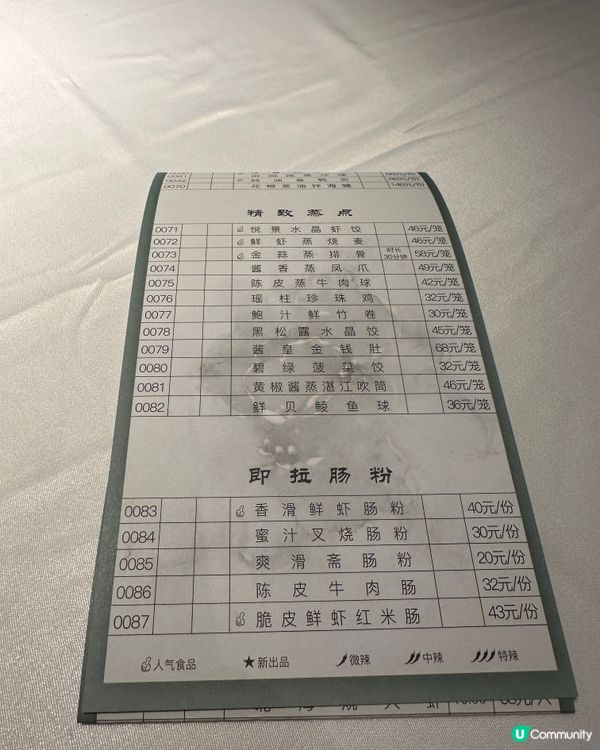 0042
0070 花椒葱油拌海蜇 148元/份
精致蒸点
0071 悦景水晶虾饺 46元/笼
0072 鲜虾蒸烧麦 46元/笼
0073 金蒜蒸排骨 时长30分钟 58元/笼
0074 酱香蒸凤爪 49元/笼
0075 陈皮蒸牛肉球 42元/笼
0076 瑶柱珍珠鸡 32元/笼
0077 鲍汁鲜竹卷 30元/笼
0078 黑松露水晶饺 45元/笼
0079 酱皇金钱肚 68元/笼
0080 碧绿菠菜饺 32元/笼
0081 黄椒酱蒸湛江吹筒 46元/笼
0082 鲜贝鲮鱼球 36元/笼
即拉肠粉
0083 香滑鲜虾肠粉 40元/份
0084 蜜汁叉烧肠粉 30元/份
0085 爽滑斋肠粉 20元/份
0086 陈皮牛肉肠 32元/份
0087 脆皮鲜虾红米肠 43元/份
人气食品 ★新出品 微辣 中辣 特辣
U Community